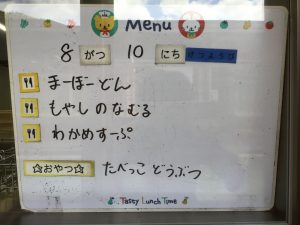 Menu
8 がつ 10 にち げつようび
まーぼーどん
もやしのなむる
わかめすーぷ
☆おやつ☆ たべっこどうぶつ
Tasty Lunch Time